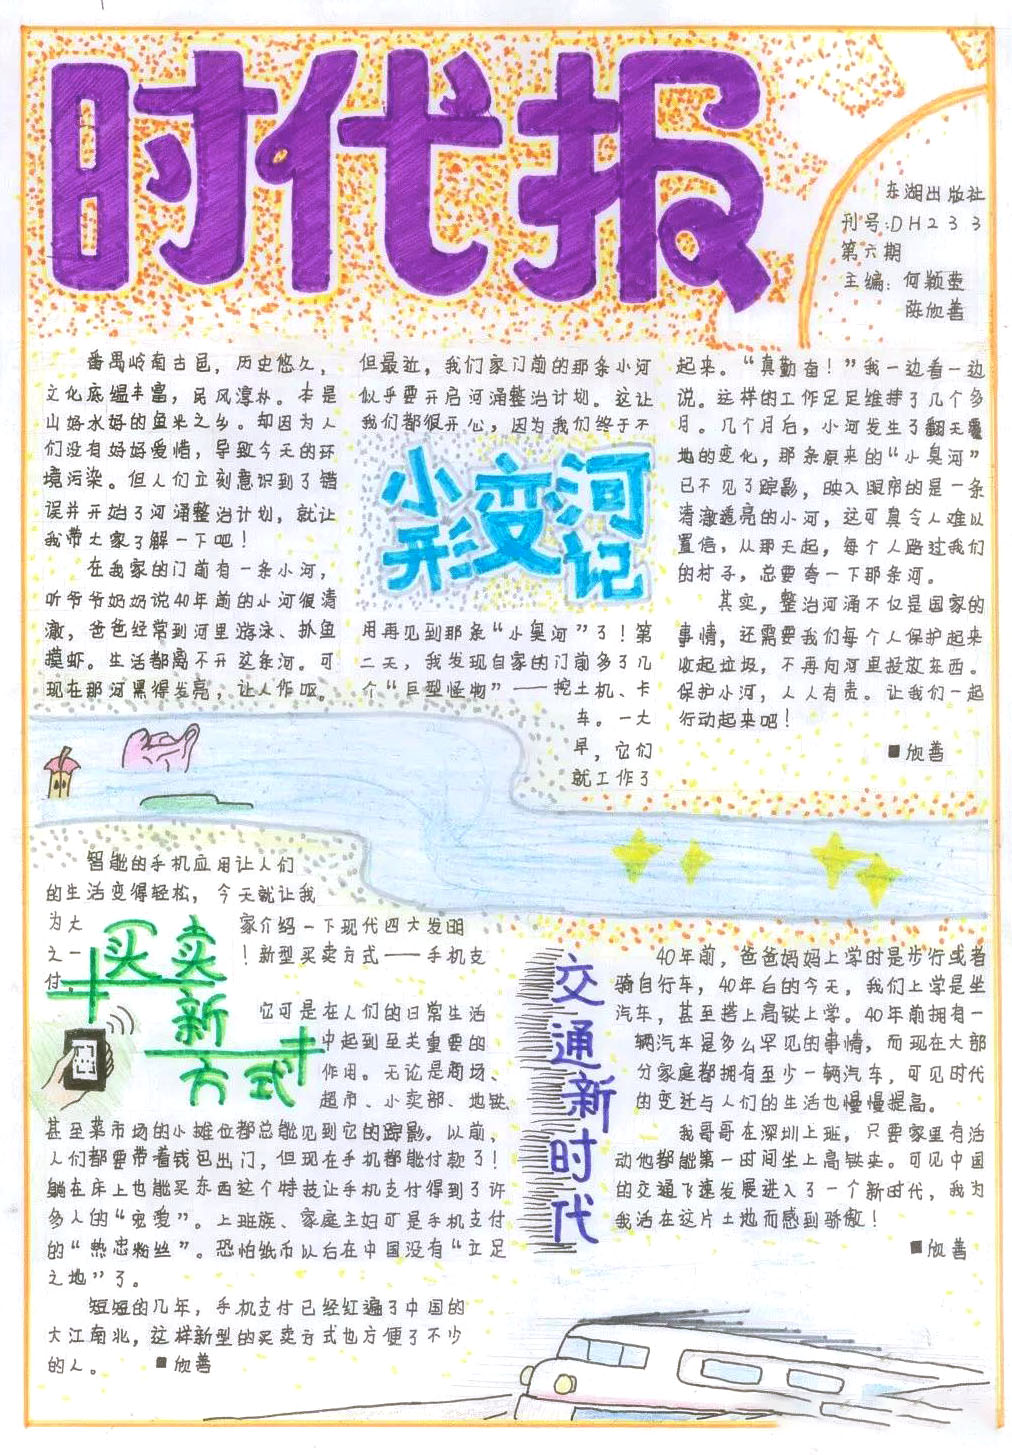 时代报
东湖出版社
刊号:DH233
第六期
主编:何颖莹
陈欣善
番禺岭南古邑，历史悠久，
文化底蕴丰富，民风淳朴。本是
山好水好的鱼米之乡。却因为人
们没有好好爱惜，导致今天的环
境污染。但人们立刻意识到了错
误并开始了河涌整治计划，就让
我带大家了解一下吧！
在我家的门前有一条小河，
听爷爷奶奶说40年前的小河很清
澈，爸爸经常到河里游泳、抓鱼
摸虾。生活都离不开这条河。可
现在那河黑得发亮，让人作呕。
但最近，我们家门前的那条小河
似乎要开启河涌整治计划。这让
我们都很开心，因为我们终于不
小河
变形记
用再见到那条“小臭河”了！第
二天，我发现自家的门前多了几
个“巨型怪物”——挖土机、卡
车。一大
早，它们
就工作了
起来。“真勤奋！”我一边看一边
说。这样的工作足足维持了几个多
月。几个月后，小河发生了翻天覆
地的变化，那条原来的“小臭河”
已不见了踪影，映入眼帘的是一条
清澈透亮的小河，这可真令人难以
置信，从那天起，每个人路过我们
的村子，总要夸一下那条河。
其实，整治河涌不仅是国家的
事情，还需要我们每个人保护起来
收起垃圾，不再向河里投放东西。
保护小河，人人有责。让我们一起
行动起来吧！
■欣善
智能的手机应用让人们
的生活变得轻松，今天就让我
为大家介绍一下现代四大发明
之一！新型买卖方式——手机支
付。
买卖
新
方式
它可是在人们的日常生活
中起到至关重要的
作用。无论是商场、
超市、小卖部、地铁
甚至菜市场的小摊位都总能见到它的踪影。以前，
人们都要带着钱包出门，但现在手机都能付款了！
躺在床上也能买东西这个特技让手机支付得到了许
多人的“宠爱”。上班族、家庭主妇可是手机支付
的“热忠粉丝”。恐怕纸币以后在中国没有“立足
之地”了。
短短的几年，手机支付已经红遍了中国的
大江南北，这样新型的买卖方式也方便了不少
的人。 ■欣善
交通新时代
40年前，爸爸妈妈上学时是步行或者
骑自行车，40年后的今天，我们上学是坐
汽车，甚至搭上高铁上学。40年前拥有一
辆汽车是多么罕见的事情，而现在大部
分家庭都拥有至少一辆汽车，可见时代
的变迁与人们的生活也慢慢提高。
我哥哥在深圳上班，只要家里有活
动他都能第一时间坐上高铁来。可见中国
的交通飞速发展进入了一个新时代，我为
我活在这片土地而感到骄傲！
■欣善